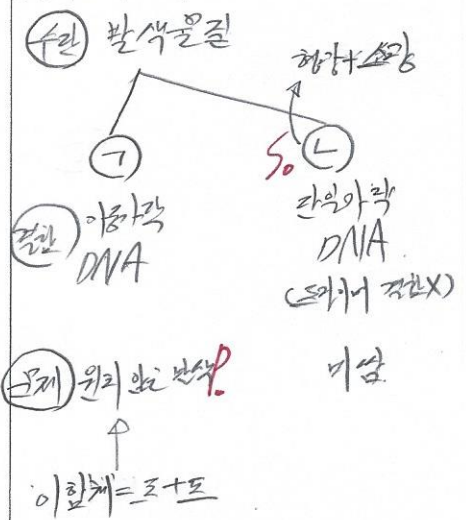 수단 발색물질
형광+소광
ㄱ So ㄴ
결합 이중가닥 DNA
단일가닥 DNA
(프라이머 결합X)
문제 원치 않는 발색?
비쌈
이합체=프+프